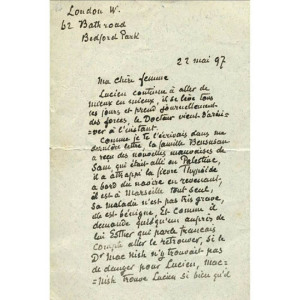 London W.
62 Bath road
Bedford Park
22 mai 97
Ma chère femme
Lucien continue à aller de
mieux en mieux, il se lève tous
ces jours et prend journellement
des forces, le Docteur vient d'arri=
=ver à l'instant.
Comme je te l'écrivais dans ma
dernière lettre la famille Bensusan
a reçu des nouvelles mauvaises de
Sam, qui était allé en Palestine,
il a attrapé la fièvre Thyroïde
a bord du navire en revenant,
il est à Marseille tout seul,
sa maladie n'est pas très grave,
de est bénigne, et comme il
demande quelqu'un auprès de
lui Esther qui parle français
compte aller le retrouver, si le
Dr Mac Nish n'y trouvait pas
de danger pour Lucien, Mac=
=Nish trouve Lucien si bien qu'il